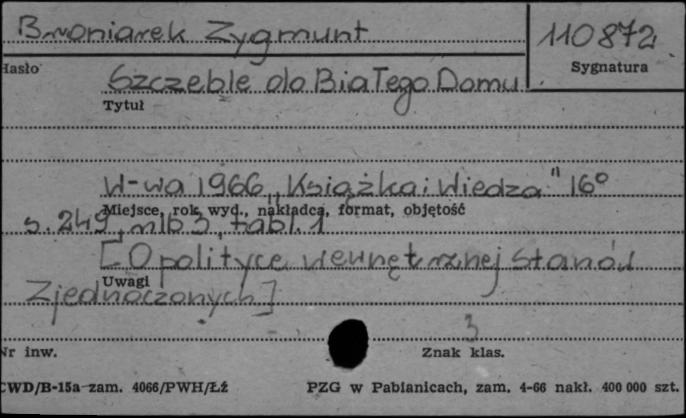 Broniarek Zygmunt
110872
Hasło
Sygnatura
Szczeble do Białego Domu
Tytuł
W-wa 1966 „Książka i Wiedza" 16°
Miejsce, rok wyd., nakładca, format, objętość
s. 249, nlb 3, tabl. 1
[O polityce wewnętrznej Stanów
Uwagi
Zjednoczonych]
3
Nr inw.
Znak klas.
CWD/B-15a zam. 4066/PWH/Łź
PZG w Pabianicach, zam. 4-66 nakł. 400 000 szt.